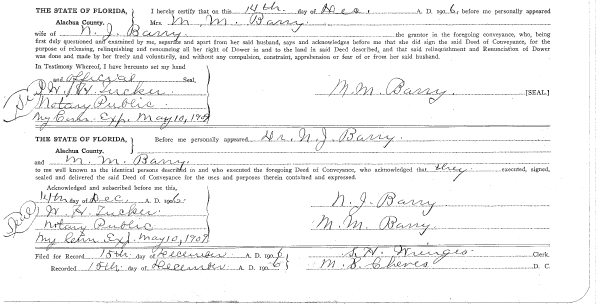 THE STATE OF FLORIDA, I hereby certify that on this 14th day of Dec. A. D. 190 6, before me personally appeared
Alachua County. Mrs. M. M. Barry
wife of N. J. Barry the grantor in the foregoing conveyance, who, being
first duly questioned and examined by me, separate and apart from her said husband, says and acknowledges before me that she did sign the said Deed of Conveyance, for the
purpose of releasing, relinquishing and renouncing all her right of Dower in and to the land in said Deed described, and that said relinquishment and Renunciation of Dower
was done and made by her freely and voluntarily, and without any compulsion, constraint, apprehension or fear of or from her said husband.
In Testimony Whereof, I have hereunto set my hand
and official Seal,
W. H. Tucker M. M. Barry. [SEAL]
Notary Public
My Com. Exp. May 10, 190
THE STATE OF FLORIDA, Before me personally appeared Dr. N. J. Barry
Alachua County.
and M. M. Barry.
to me well known as the identical persons described in and who executed the foregoing Deed of Conveyance, who acknowledged that they executed, signed,
sealed and delivered the said Deed of Conveyance for the uses and purposes therein contained and expressed.
Acknowledged and subscribed before me this,
14th day of Dec. A. D. 1906. N. J. Barry
W. H. Tucker M. M. Barry
Notary Public
My Com. Exp. May 10, 1909
Filed for Record 15th day of December A. D. 190 6 S. H. Wienges Clerk.
Recorded 15th day of December A. D. 190 6 M. S. Cheves D. C.